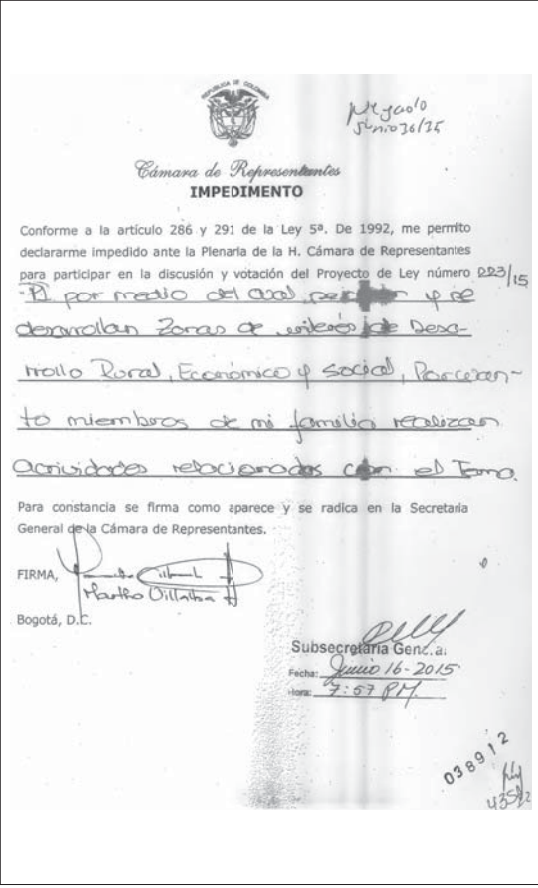 REPUBLICA DE COLOMBIA
Negado
Junio 16/15
Cámara de Representantes
IMPEDIMENTO
Conforme a la artículo 286 y 291 de la Ley 5ª. De 1992, me permito
declararme impedido ante la Plenaria de la H. Cámara de Representantes
para participar en la discusión y votación del Proyecto de Ley número 223/15
por medio del cual se crean y se
desarrollan Zonas de interés de Desa-
rrollo Rural, Económico y Social, Porcuan-
to miembros de mi familia realizan
actividades relacionadas con el Tema.
Para constancia se firma como aparece y se radica en la Secretaria
General de la Cámara de Representantes.
FIRMA,
Martha Villalba H
Bogotá, D.C.
Subsecretaria General
Fecha: Junio 16-2015
Hora: 7:57 PM.
038912